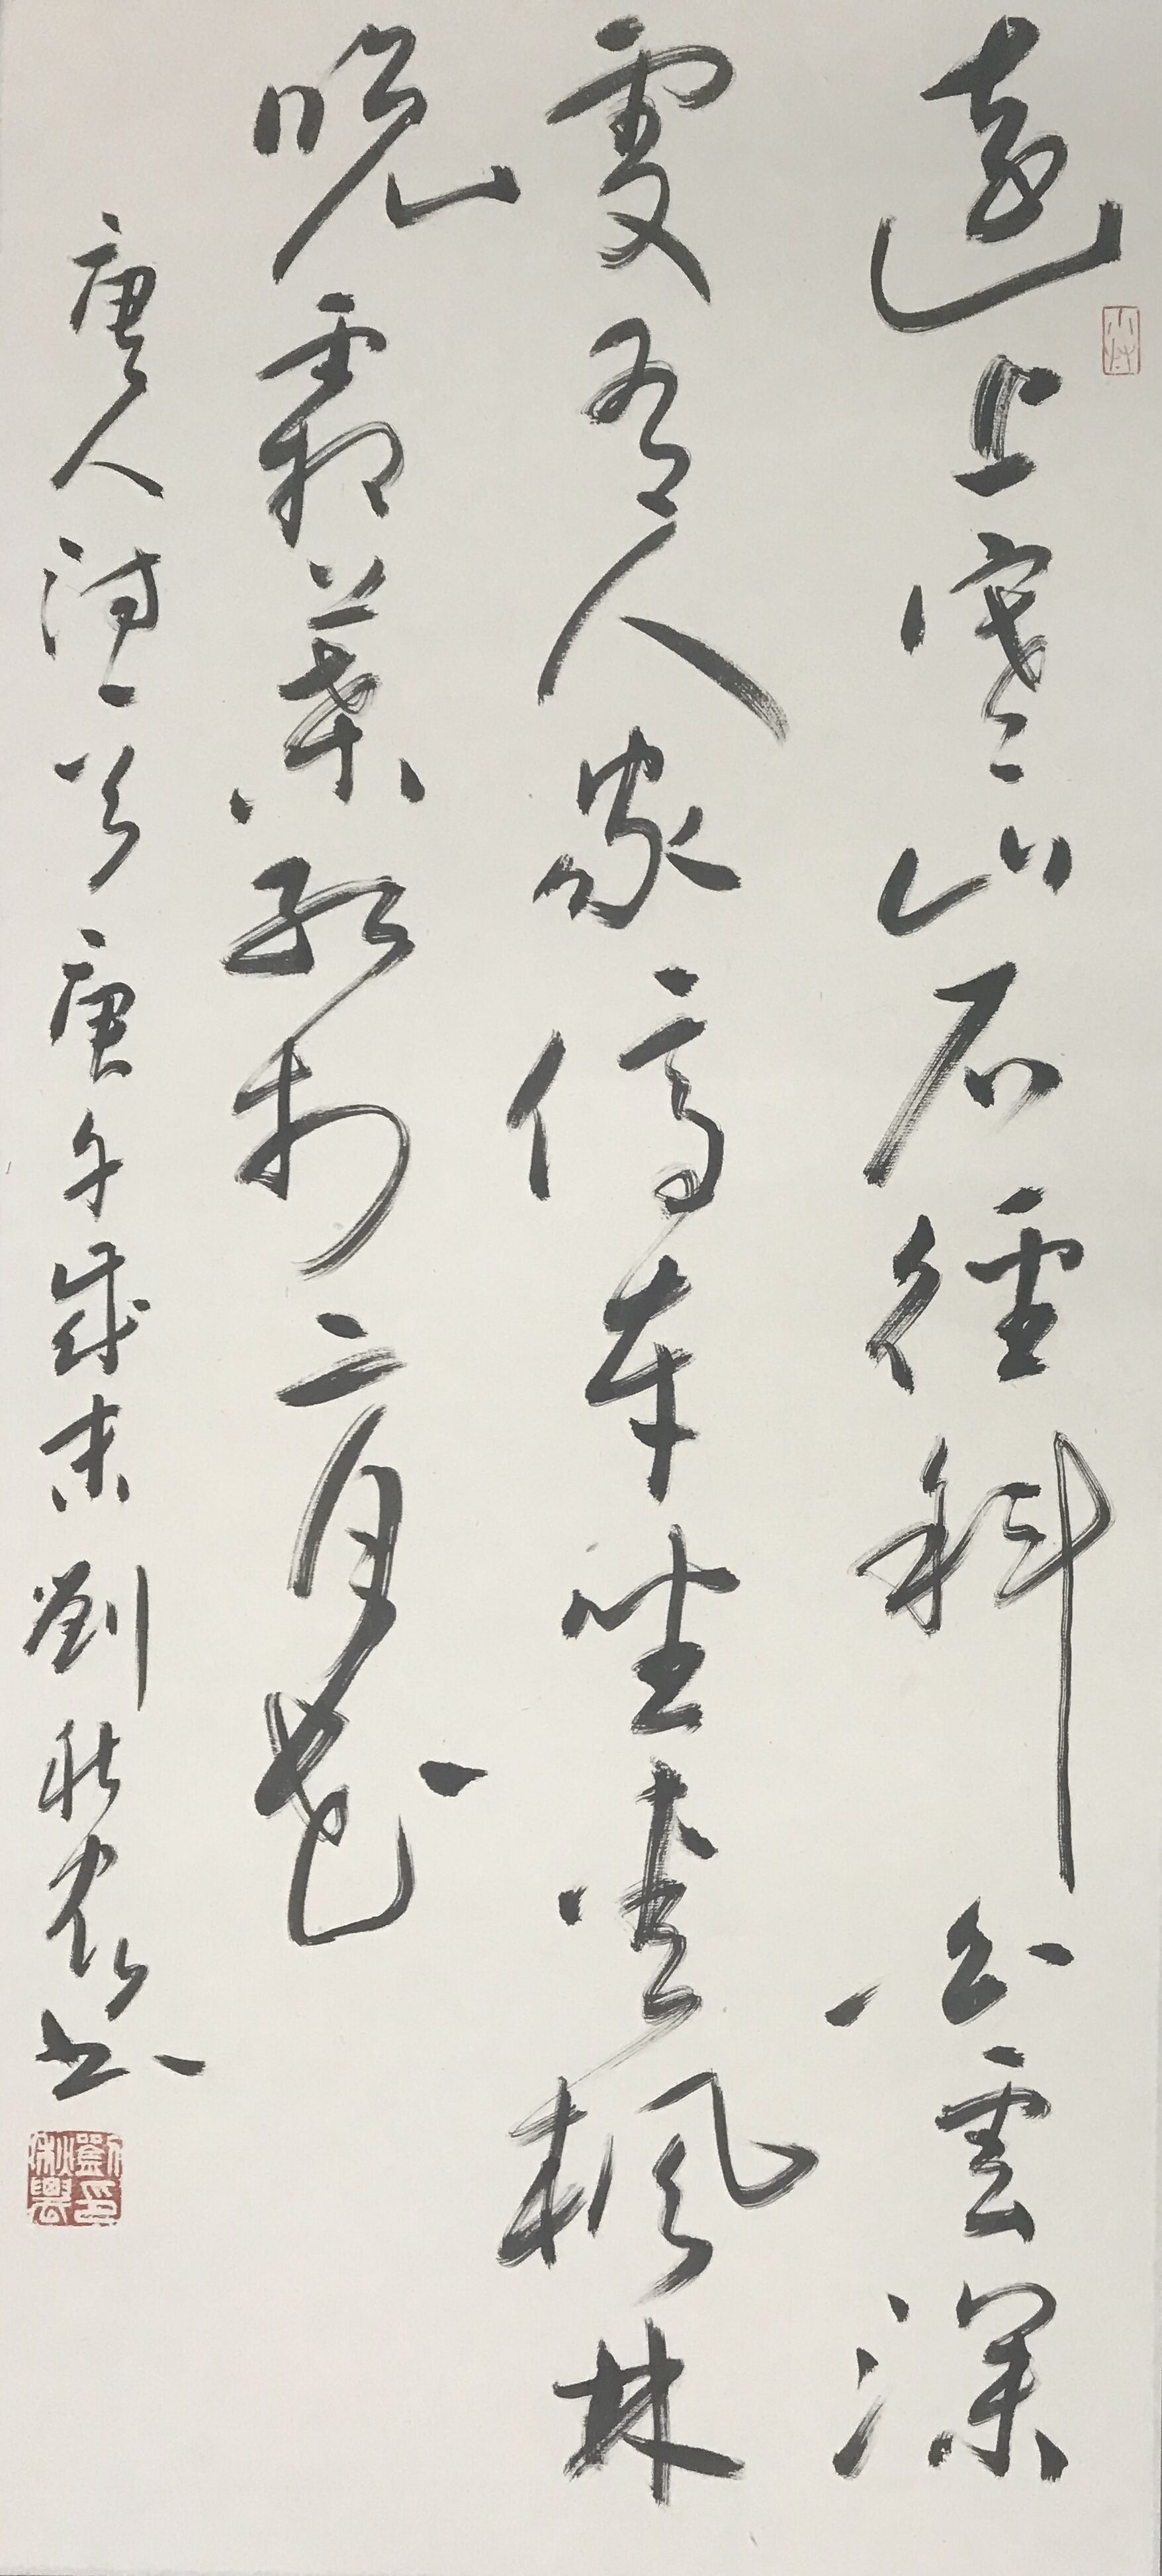 遠上寒山石徑斜白雲深
處有人家停車坐愛楓林
晚霜葉紅於二月花
唐人詩一首庚午歲末劉秋農書